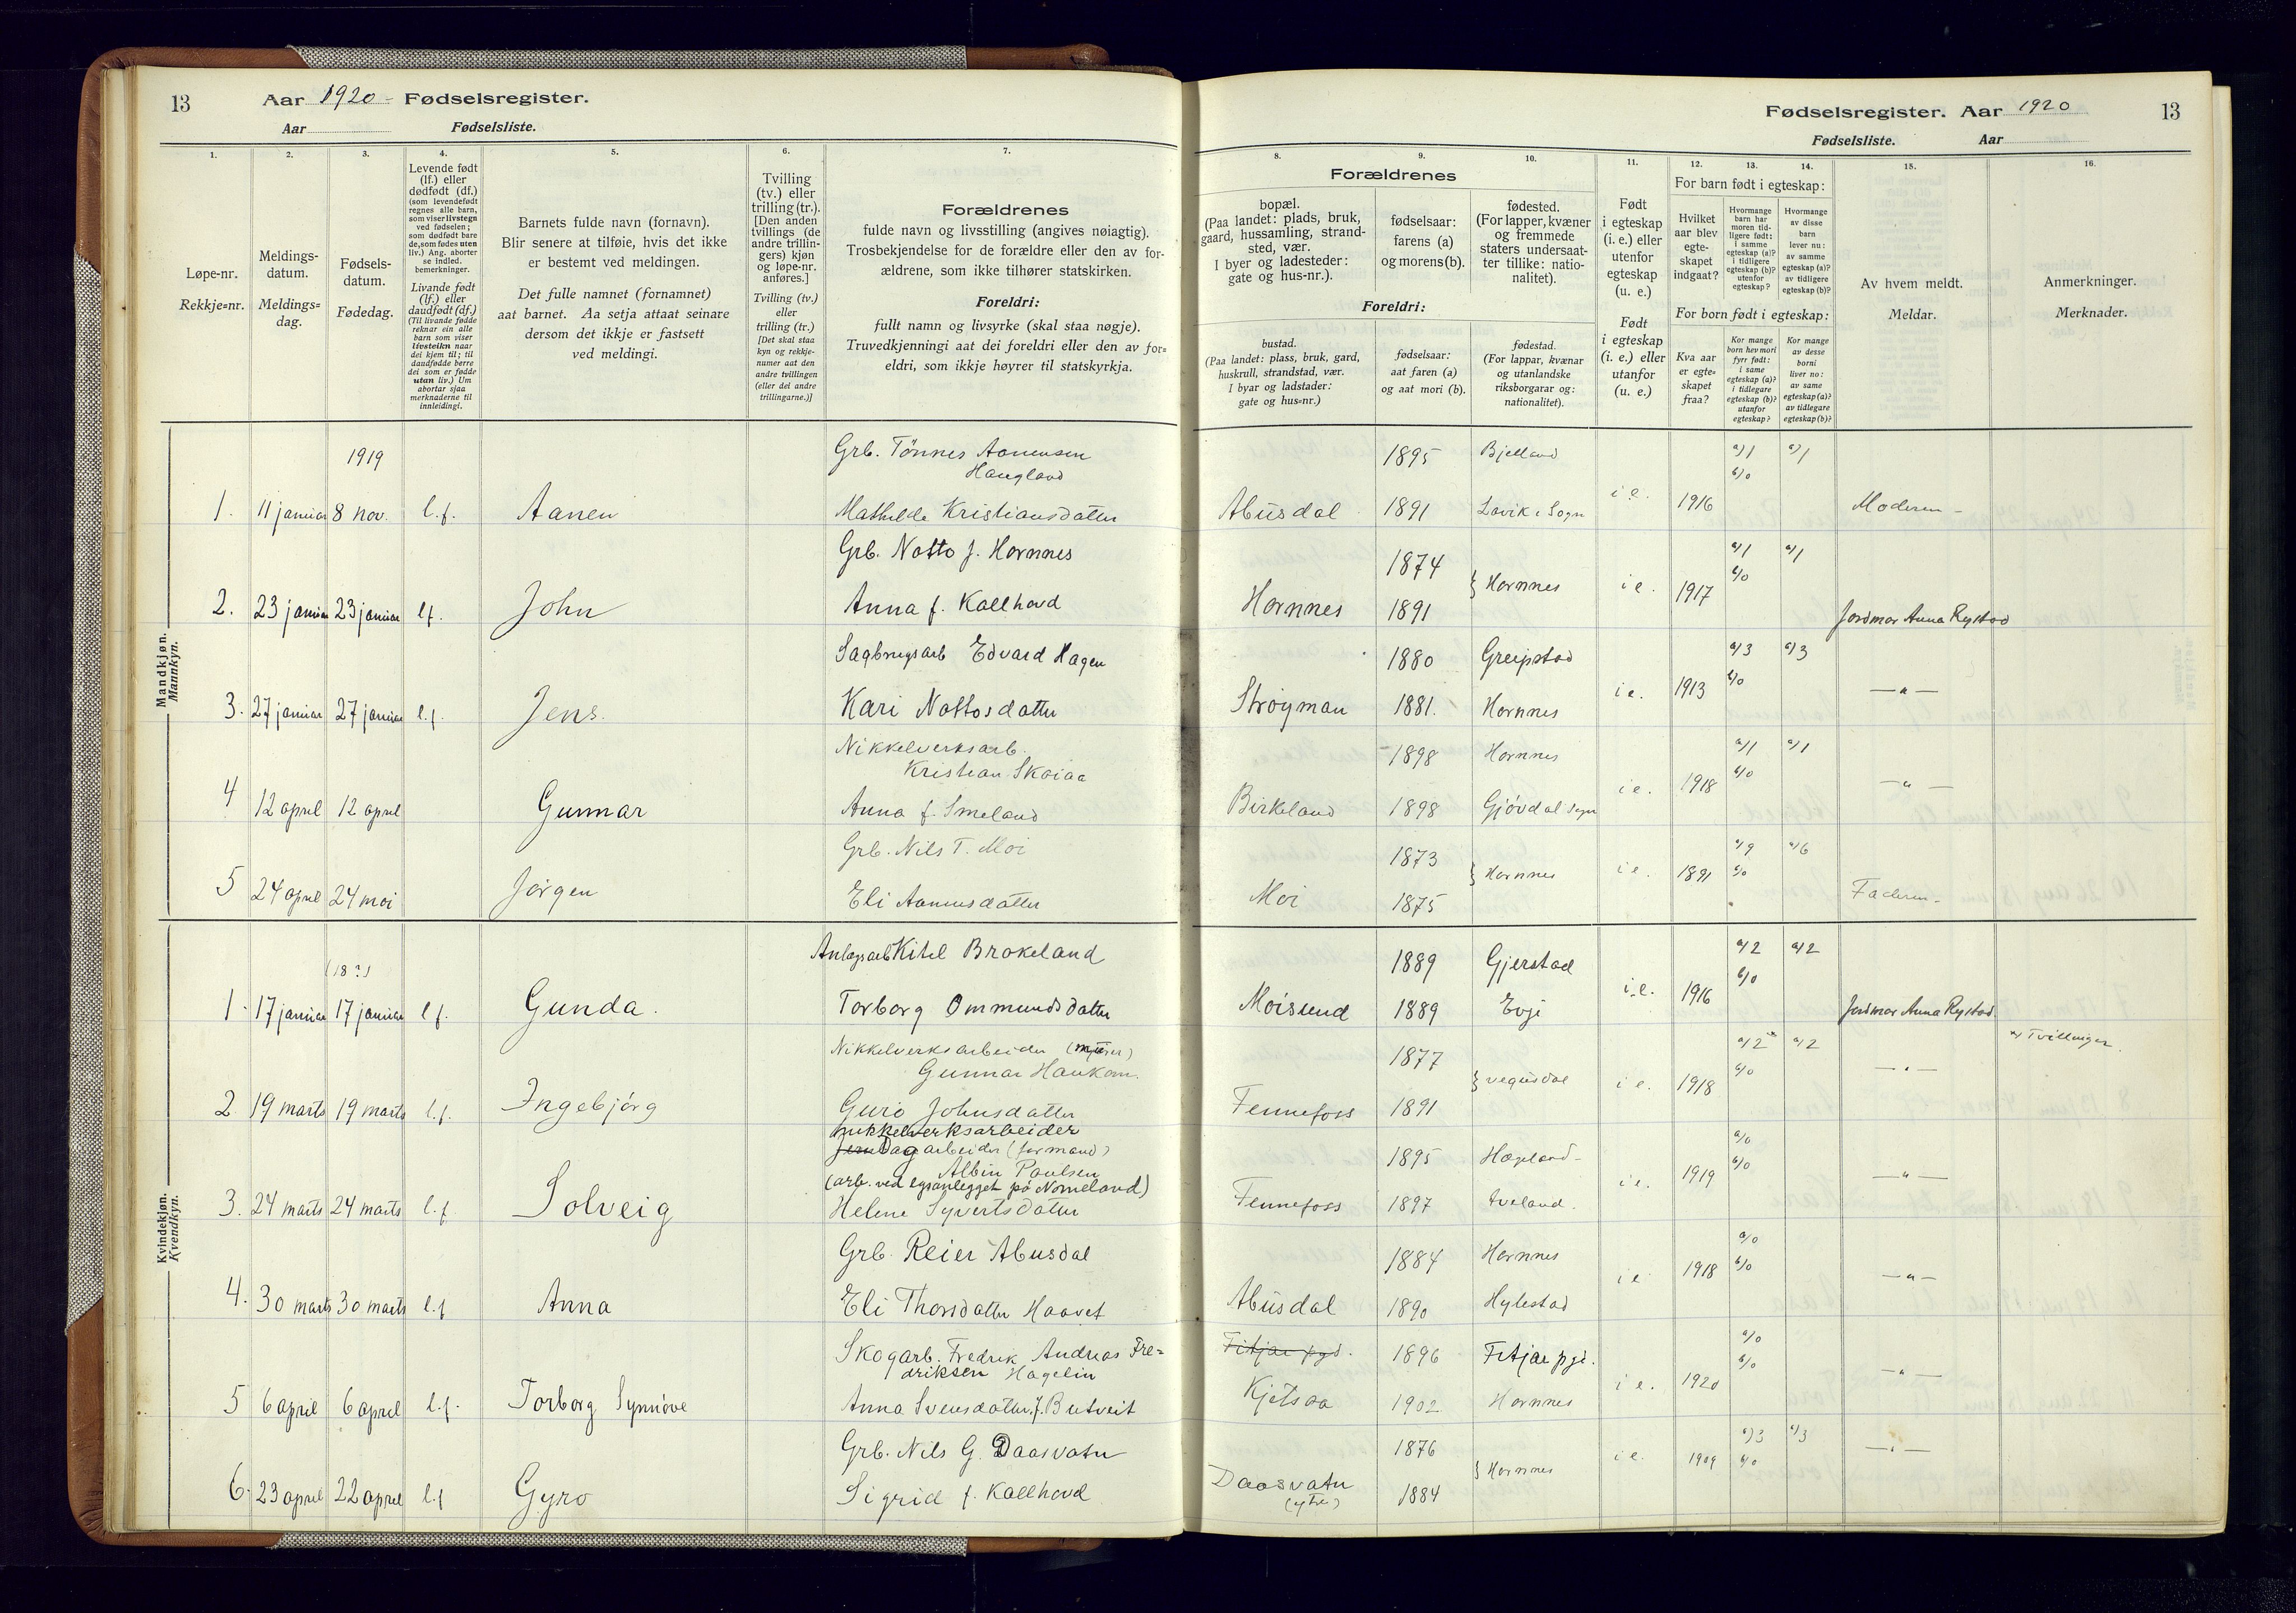 13 Aar 1920 Fødselsregister.
Aar Fødselsliste.
Fødselsregister. Aar 1920 13
Fødselsliste. Aar
1. 2. 3. 4. 5. 6. 7.
Løpe-nr.
Rekkje=nr.
Meldings-
datum.
Meldings=
dag.
Fødsels-
datum.
Fødedag.
Levende født
(lf.) eller
dødfødt (df.)
(som levendefødt
regnes alle barn,
som viser livstegn
ved fødselen;
som dødfødt bare
de, som fødes uten
liv.) Ang. aborter
se indled.
bemerkninger.
Livande født
(lf.) eller
daudfødt (df.)
(Til livande fødde
reknar ein alle
barn som viser
livsteikn naar
dei kjem til; til
daudfødde berre
dei som er fødde
utan liv.) Um
abortar sjaa
merknaderne til
innleidingi.
Barnets fulde navn (fornavn).
Blir senere at tilføie, hvis det ikke
er bestemt ved meldingen.
Det fulle namnet (fornamnet)
aat barnet. Aa setja attaat seinare
dersom det ikkje er fastsett
ved meldingi.
Tvilling
(tv.) eller
trilling (tr.).
[Den anden
tvillings (de
andre trillin-
gers) kjøn
og løpe-nr.
anføres.]
Tvilling (tv.)
eller
trilling (tr.)
[Det skal staa
kyn og rekkje-
numer aat den
andre tvillingen
(eller dei andre
trillingarne.)]
Forældrenes
fulde navn og livsstilling (angives nøiagtig).
Trosbekjendelse for de forældre eller den av for-
ældrene, som ikke tilhører statskirken.
Foreldri:
fullt namn og livsyrke (skal staa nøgje).
Truvedkjenningi aat dei foreldri eller den av for=
eldri, som ikkje høyrer til statskyrkja.
8. 9. 10. 11. 12. 13. 14. 15. 16.
Forældrenes
bopæl.
(Paa landet: plads, bruk,
gaard, hussamling, strand-
sted, vær.
I byer og ladesteder:
gate og hus-nr.).
fødselsaar:
farens (a)
og morens (b).
fødested.
(For lapper, kvæner
og fremmede
staters undersaat-
ter tillike: natio-
nalitet).
Foreldri:
bustad.
(Paa landet: plass, bruk, gard,
huskrull, strandstad, vær.
I byar og ladstader:
gate og hus=nr.)
fødselsaar:
aat faren (a)
og aat mori (b).
fødestad.
(For lappar, kvænar
og utanlandske
riksborgarar og:
nationalitet).
Født
i egteskap
(i. e.) eller
utenfor
egteskap
(u. e.)
Født
i egteskap
(i. e.) eller
utanfor
(u. e.)
For barn født i egteskap:
Hvilket
aar blev
egte-
skapet
indgaat?
Hvormange
barn har
moren tid-
ligere født:
i samme
egteskap (a)?
i tidligere
egteskap (b)?
utenfor
egteskap?
Hvormange
av disse
barn
lever nu:
av samme
egteskap (a)?
av tidligere
egteskap (b)?
For born født i egteskap:
Kva aar
er egte-
skapet
fraa?
Kor mange
born hev mori
fyrr født:
i same
egteskap (a)?
i tidlegare
egteskap (b)?
utanfor
egteskap?
Kor mange
av desse
borni
liver no:
av same
egteskap (a)?
av tidlegare
egteskap (b)?
Av hvem meldt.
Meldar.
Anmerkninger.
Merknader.
Mandkjøn.
Mannkyn.
1919 Grb. Tönnes Aanensen 1895 Bjelland a)1 a)1
Haugland b)0
1. 11 januar 8 nov. l.f. Aanen Mathilde Kristiansdatter Abusdal 1891 Lavik i Sogn i e. 1916 Moderen
Grb. Notto f. Hornnes 1874 a)1 a)1
b)0
2. 23 januar 23 januar lf. John Anna f. Kallhovd Hornnes 1891 Hornnes i e. 1917 Jordmor Anna Rystad
Sagbrugsarb Edvard Hagen 1880 Greipstad a)3 a)3
b)0
3. 27 januar 27 januar l.f. Jens. Kari Nottosdatter Ströyman 1881. Hornnes i e. 1913 — " —
Nikkelverksarb. 1898 Hornnes a)1 a)1
Kristian Skaiaa b)0
4 12 april 12 april Gunnar Anna f. Smeland Birkeland 1898 Gjövdal Sogn i e. 1918 — " —
Grb. Nils T. Moi 1873 a)9 a)6
b)0
5 24 april 24 mai Jörgen Eli Aanensdatter Moi 1875 Hornnes i e. 1891 Faderen
Kvindekjøn.
Kvendkyn.
(18 ?) Anlægsarb Kitel Brokeland 1889 Gjerstad a)2 a)2
b)0
1. 17 januar 17 januar l f. Gunda. Torborg Ommundsdatter Moisund 1889 Evje i.e. 1916 Jordmor Anna Rystad.
Nikkelverksarbeider 1877 a)2 * a)2 *) Tvillinger.
Gunnar Haukom. b)0
2 19 marts 19 marts l.f. Ingebjörg Guro Johnsdatter Fennefoss 1891 Vegusdal i e. 1918 — " —
Nikkelverksarbeider
Dagarbeider (formand) 1895 Hægeland a)0
Albin Paulsen b)0
(arb. ved egsanlegget på Nomeland)
3. 24 marts 24 marts l.f. Solveig Helene Syvertsdatter Fennefoss 1897 Aveland. i e. 1919 — " —
Grb. Reier Abusdal 1884 Hornnes a)0
b)0
4. 30 marts 30 marts l.f Anna Eli Thorsdatter Haavet Abusdal 1890 Hylestad i e 1918 — " —
Skogarb. Fredrik Andreas Fre= Fitjar pgd. 1896 Fitjar pgd. a)0
driksen Hagelin b)0
5 6 april 6 april l.f. Torborg Synnöve Anna Svensdatter f. Butveit Kjetsaa 1902 Hornnes i e. 1920 — " —
Grb. Nils G. Daasvatn 1876 a)3 a)3
b)0
6. 23 april 22 april l.f Gyro Sigrid f. Kallhovd Daasvatn 1884 Hornnes i e. 1909 — " —
(ytre)